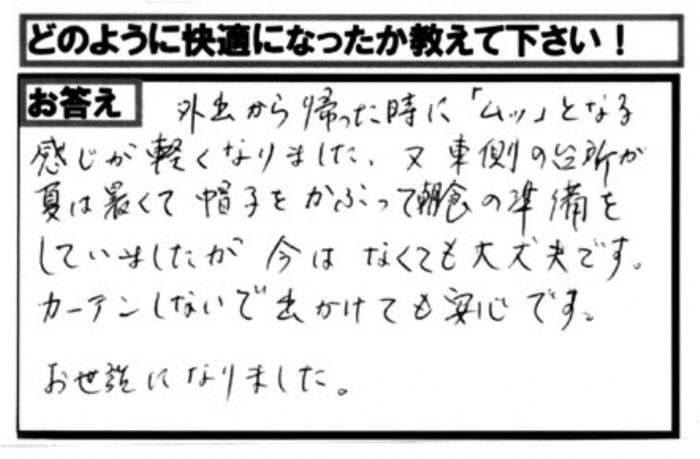 どのように快適になったか教えて下さい！
お答え 外出から帰った時に「ムッ」となる
感じが軽くなりました、又東側の台所が
夏は暑くて帽子をかぶって朝食の準備を
していましたが今はなくても大丈夫です。
カーテンしないで出かけても安心です。
お世話になりました。